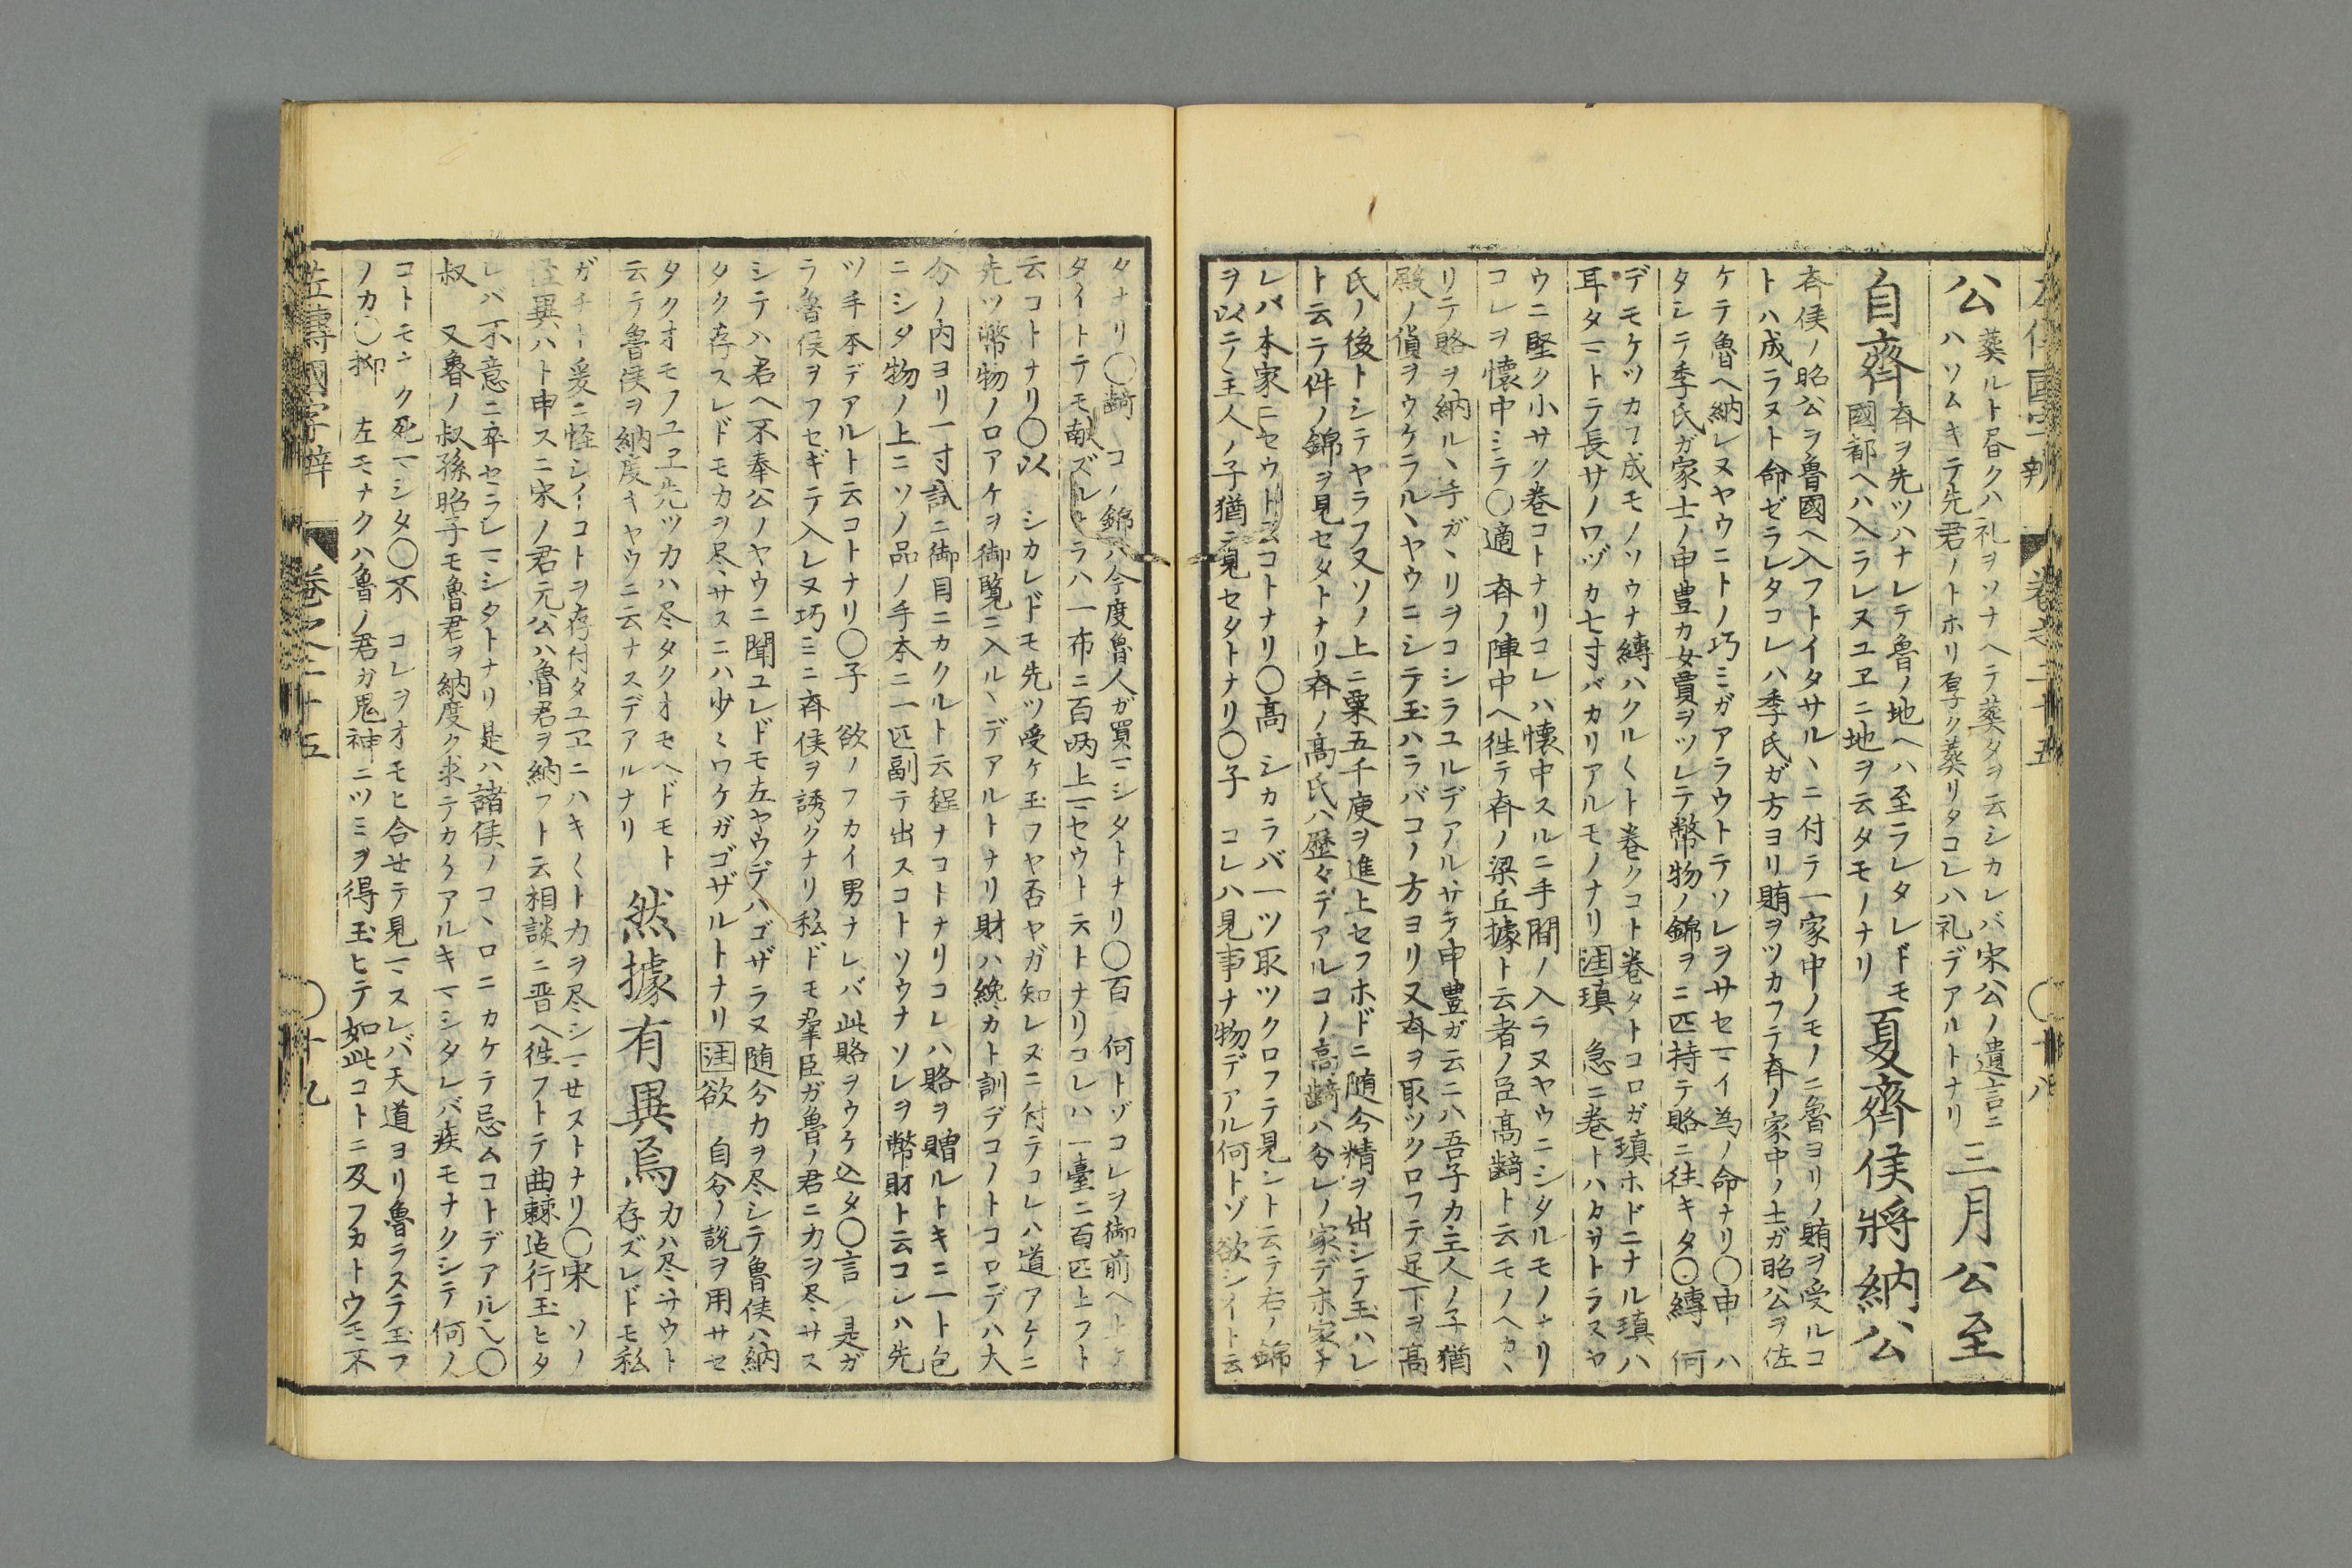 左傳國字辨　卷之二十五　〇十八
公
葬ルト昏クハ礼ヲソナヘテ葬タヲ云シカレバ宋公ノ遺言ニ
ハソムキテ先君ノトホリ厚ク葬リタコレハ礼デアルトナリ
三月公至
自齊
斉ヲ先ツハナレテ魯ノ地ヘハ至ラレタレドモ
國都ヘハ入ラレヌユヱニ地ヲ云タモノナリ
夏齊侯將納公
斉侯ノ昭公ヲ魯國ヘ入フトイタサルヽニ付テ一家中ノモノニ魯ヨリノ賄ヲ受ルコ
トハ成ラヌト命ゼラレタコレハ季氏ガ方ヨリ賄ヲツカフテ斉ノ家中ノ士ガ昭公ヲ佐
ケテ魯ヘ納レヌヤウニトノ巧ミガアラウトテソレヲサセマイ為ノ命ナリ〇申ハ
タシニテ季氏ガ家士ノ申豊カ女賈ヲツレテ幣物ノ錦ヲ二匹持テ賂ニ往キタ〇縳　何
デモケツカフ成モノソウナ縳ハクルクト巻クコト巻タトコロガ瑱ホドニナル瑱ハ
耳タマトテ長サノワヅカ七寸バカリアルモノナリ注瑱　急ニ巻トハカサトラスヤ
ウニ堅ク小サク巻コトナリコレハ懐中スルニ手間ノ入ラヌヤウニシタルモノナリ
コレヲ懐中ミシテ〇適　斉ノ陣中ヘ徃テ斉ノ梁丘據ト云者ノ臣高齮ト云モノヘカヽ
リテ賂ヲ納ルヽ手ガヽリヲコシラユルデアルサテ申豊ガ云ニハ吾子カ主人ノ子猶
殿ノ償ヲウケラルヽヤウニシテ玉ハラバコノ方ヨリ又斉ヲ取ツクロフテ足下ヲ高
氏ノ後トシテヤラフ又ソノ上ニ粟五千庾ヲ進上セフホドニ随分精ヲ出シテ玉ハレ
ト云テ件ノ錦ヲ見セタトナリ斉ノ高氏ハ歴々デアルコノ高齮ハ分レノ家デホ家ナ
レバ本家ニセウト云コトナリ〇高　シカラバ一ツ取ツクロフテ見ント云テ右ノ錦
ヲ以テ主人ノ子猶ニ見セタトナリ〇子　コレハ見事ナ物デアル何トゾ欲シイト云
タナリ〇齮　コノ錦ハ今度魯人ガ買マシタトナリ〇百　何トゾコレヲ御前ヘ上ケ
タイトテモ献ズルカラハ一布ニ百兩上マセウト云トナリコレハ一臺ニ百匹上フト
云コトナリ〇以　シカレドモ先ツ受ケ玉フヤ否ヤガ知レヌニ付テコレハ道アケニ
先ツ幣物ノロアケヲ御覽ニ入ルヽデアルトナリ財ハ纔カト訓デコノトコロデハ大
分ノ内ヨリ一寸試ニ御目ニカクルト云程ナコトナリコレハ賂ヲ贈ルトキニ一ト包
ニシタ物ノ上ニソノ品ノ手本ニ一匹副テ出スコトソウナソレヲ幣財ト云コレハ先
ツ手本デアルト云コトナリ〇子　欲ノフカイ男ナレバ此賂ヲウケ込タ〇言　是ガ
ラ魯侯ヲフセギテ入レヌ巧ミニ斉侯ヲ誘クナリ私ドモ羣臣ガ魯ノ君ニ力ヲ尽ヽサス
シテハ君ヘ不奉公ノヤウニ聞ユレドモ左ヤウデハゴザラヌ随分力ヲ尽シテ魯侯ハ納
タク存スレドモカヲ尽ヽサスニハ少ミワケガゴザルトナリ注欲　自分ノ説ヲ用サセ
タクオモフユヱ先ツ力ハ尽タクオモヘドモト
云テ魯侯ヲ納度キヤウニ云ナスデアルナリ
然據有異焉
力ハ尽ヽサウト
存ズレドモ私
ガチト爰ニ怪シイコトヲ存付タユヱニハキ〳〵ト力ヲ尽シマセストナリ〇宋　ソノ
怪異ハト申スニ宋ノ君元公ハ魯君ヲ納フト云相談ニ晋ヘ徃フトテ曲棘迠行玉ヒタ
レバ不意ニ卒セラレマシタトナリ是ハ諸侯ノコヽロニカケテ忌ムコトデアル也〇
叔　又魯ノ叔孫昭子モ魯君ヲ納度ク求テカケアルキマシタレバ疾モナクシテ何ノ
コトモニク死マシタ〇不　コレヲオモヒ合セテ見マスレバ天道ヨリ魯ラステ玉フ
ノカ〇抑　左モナクハ魯ノ君ガ鬼神ニツミヲ得玉ヒテ如此コトニ及フカトウモ不
左傳國字辨　卷之二十五　〇十九